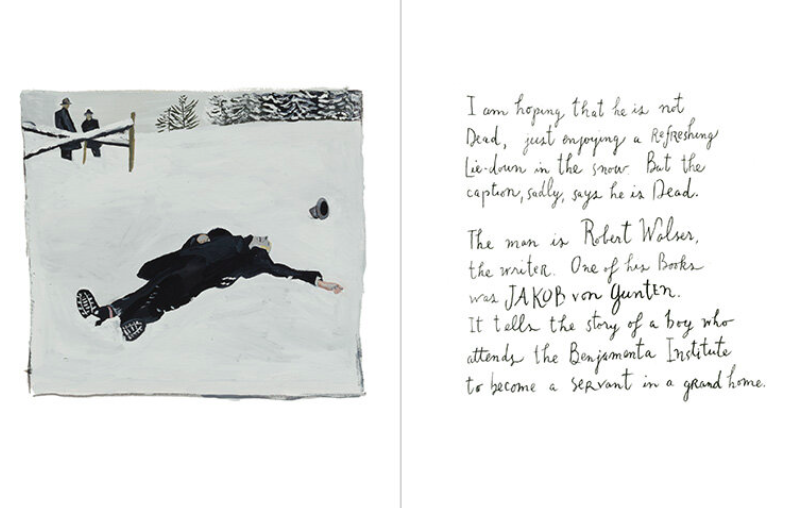 I am hoping that he is not
Dead, just enjoying a Refreshing
Lie-down in the snow. But the
caption, sadly, says he is Dead.
The man is Robert Walser,
the writer. One of his Books
was JAKOB von Gunten.
It tells the story of a boy who
attends the Benjamenta Institute
to become a servant in a grand home.